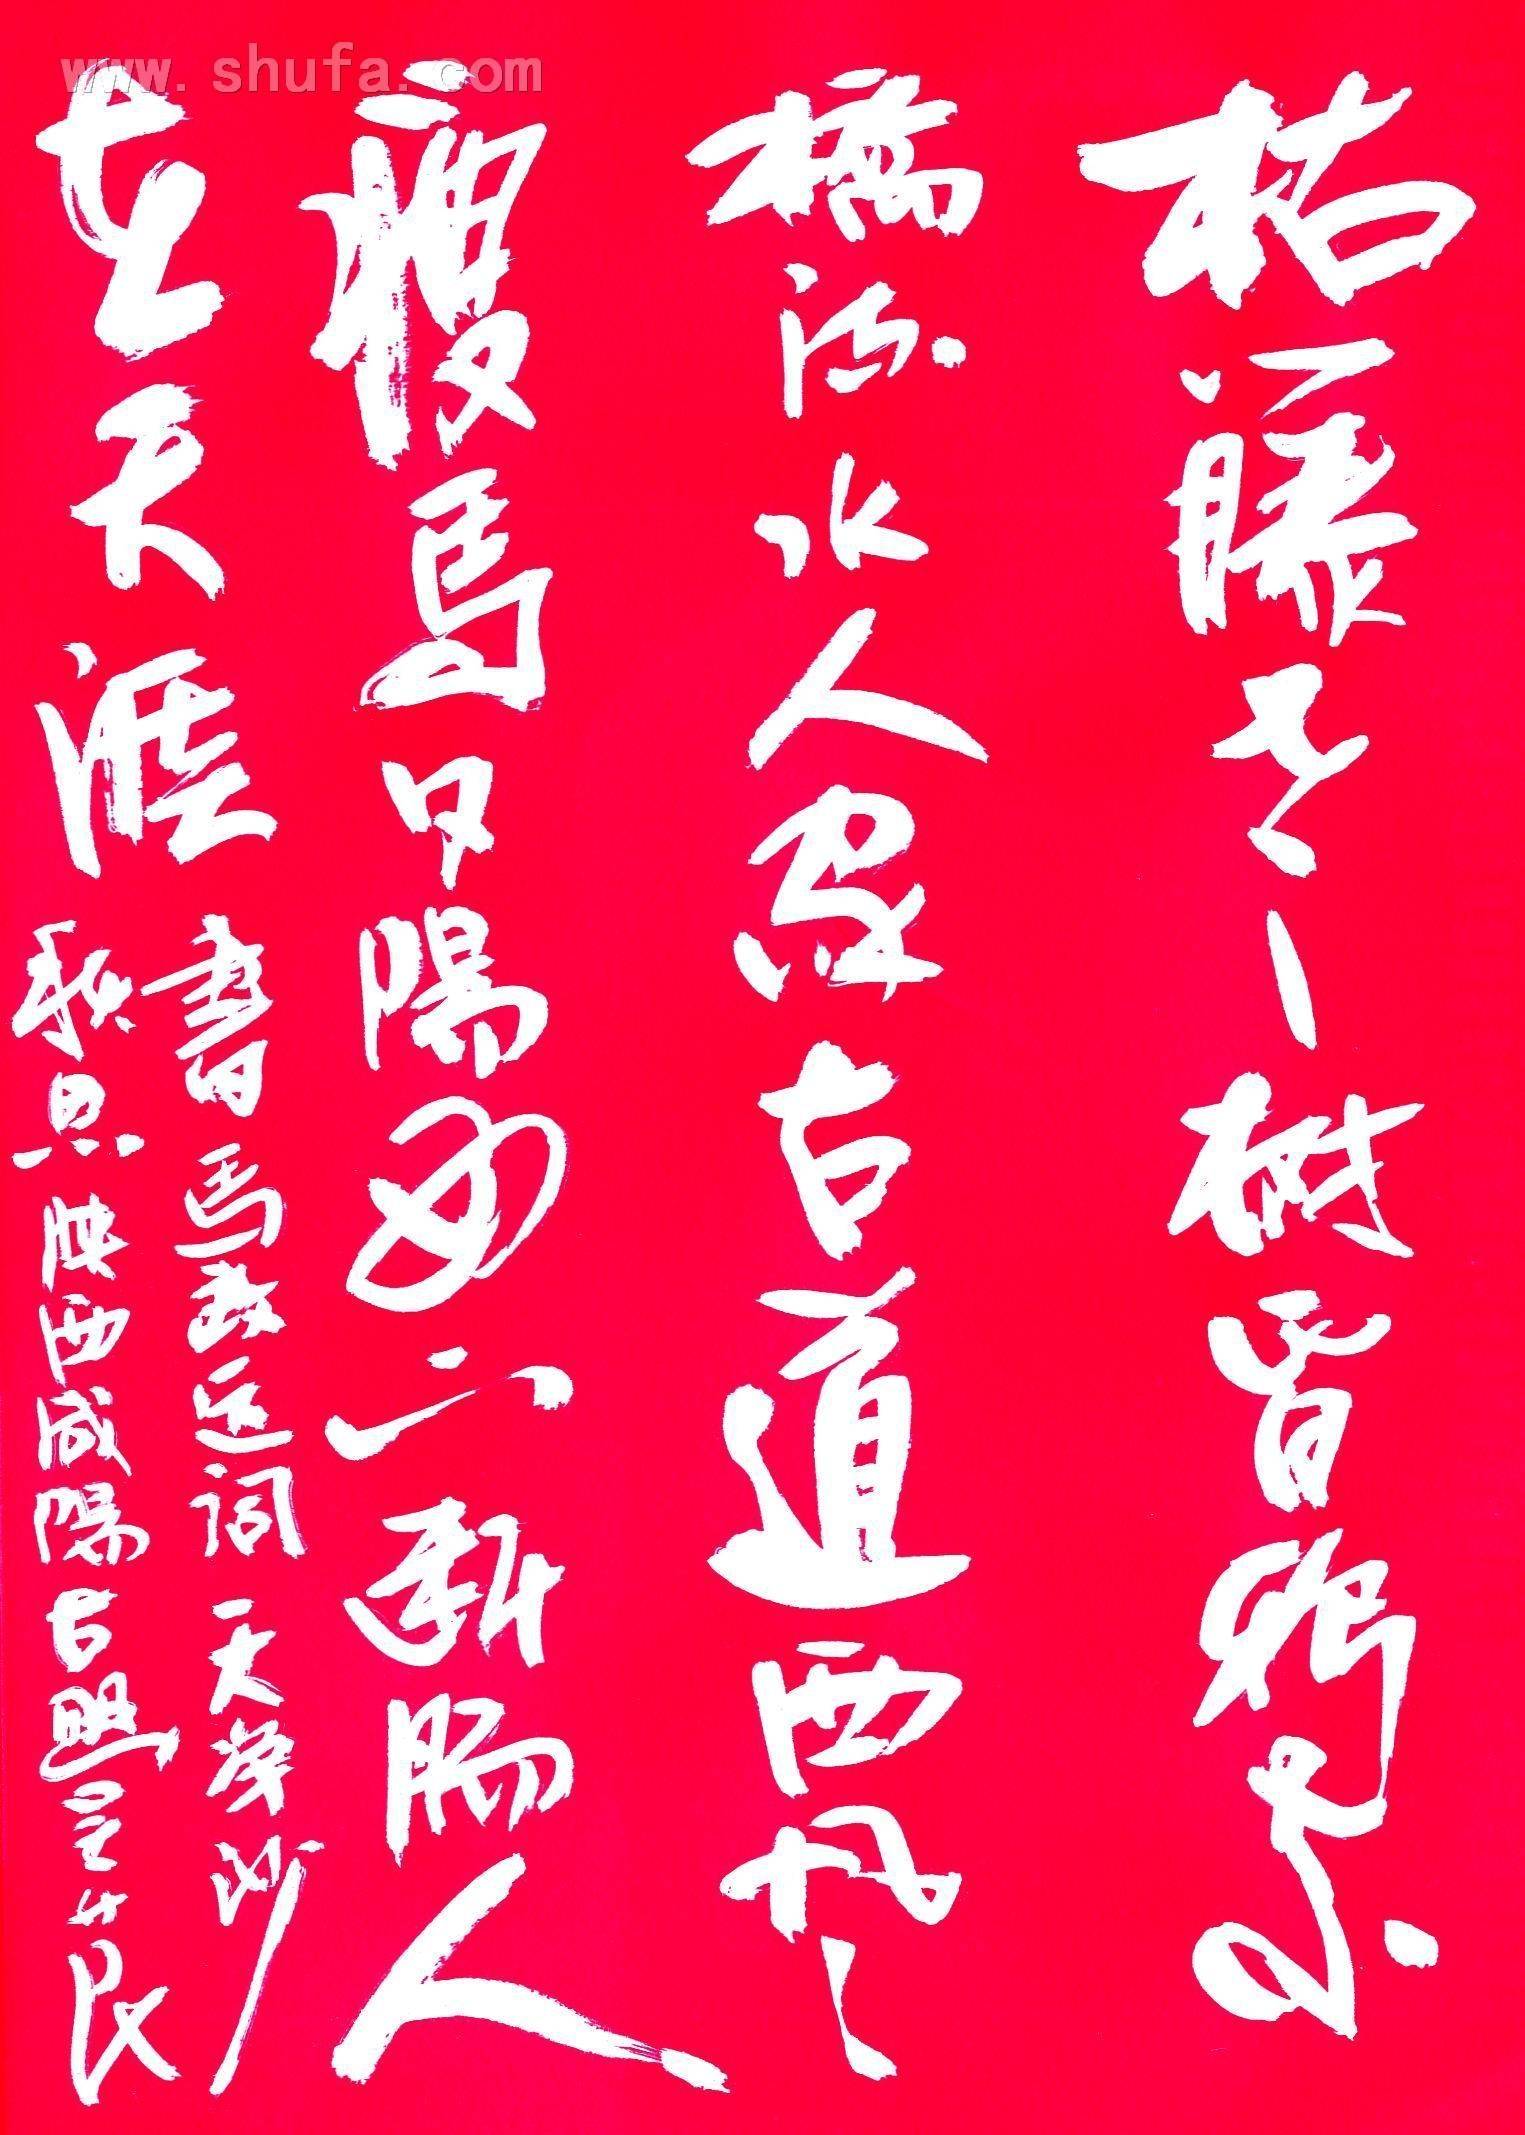 www.shufa.com
枯藤老樹昏鴉小
橋流水人家古道西風
瘦馬夕陽西下斷腸人
在天涯
書馬致遠詞 天淨沙
秋思 陝西咸陽古